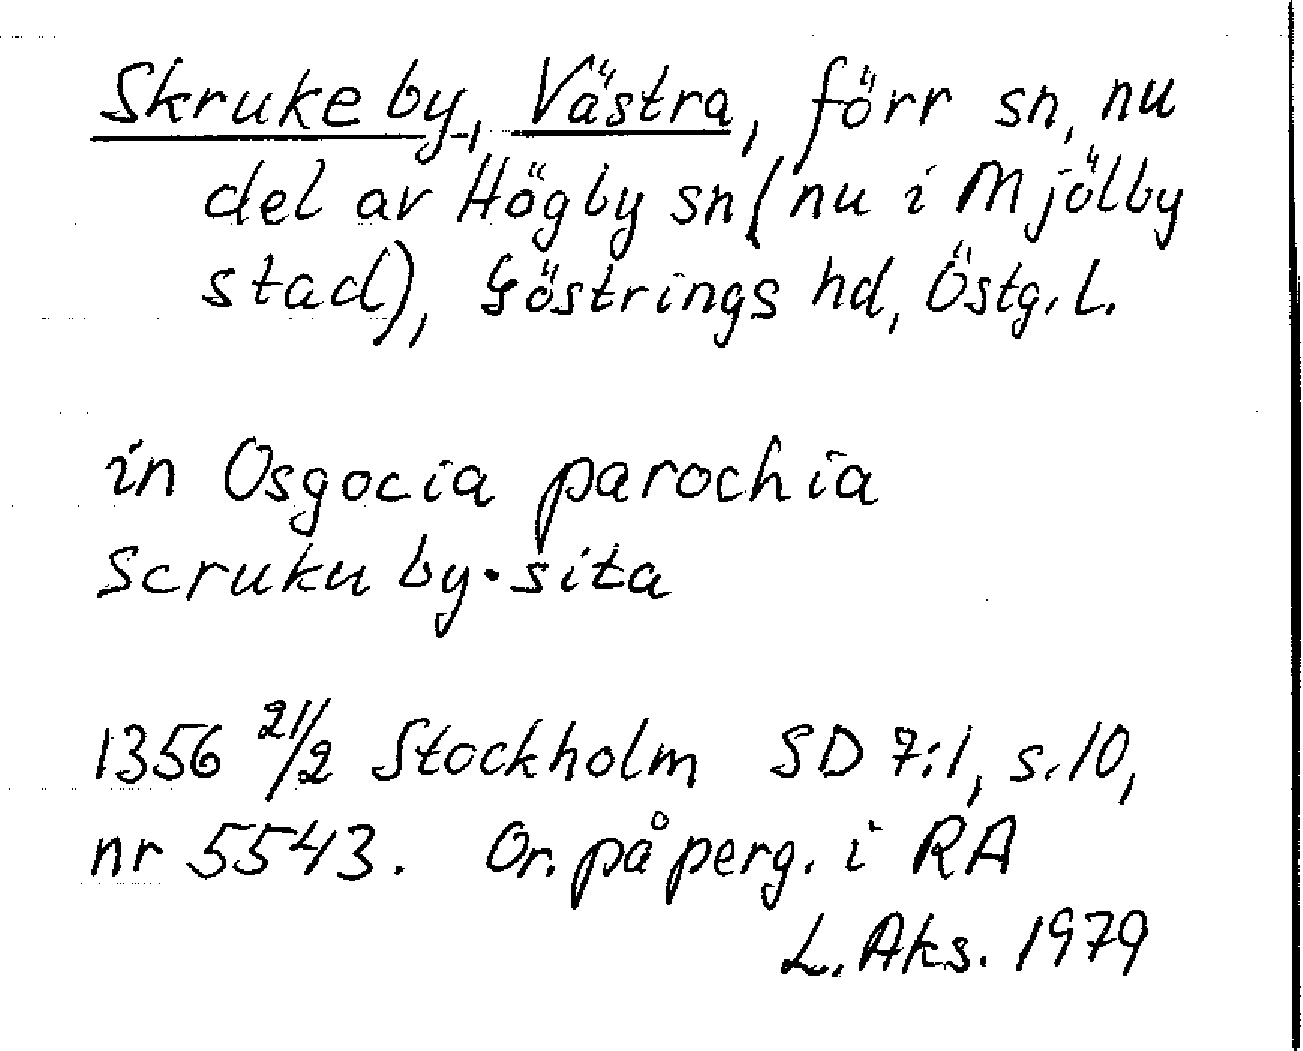 Skrukeby, Västra, förr sn, nu
del av Högby sn (nu i Mjölby
stad), Göstrings hd, Östg. L.
in Osgocia parochia
Scruku by · sita
1356 21/2 Stockholm SD 7:1, s. 10,
nr 5543. Or. på perg. i RA
L. Aks. 1979